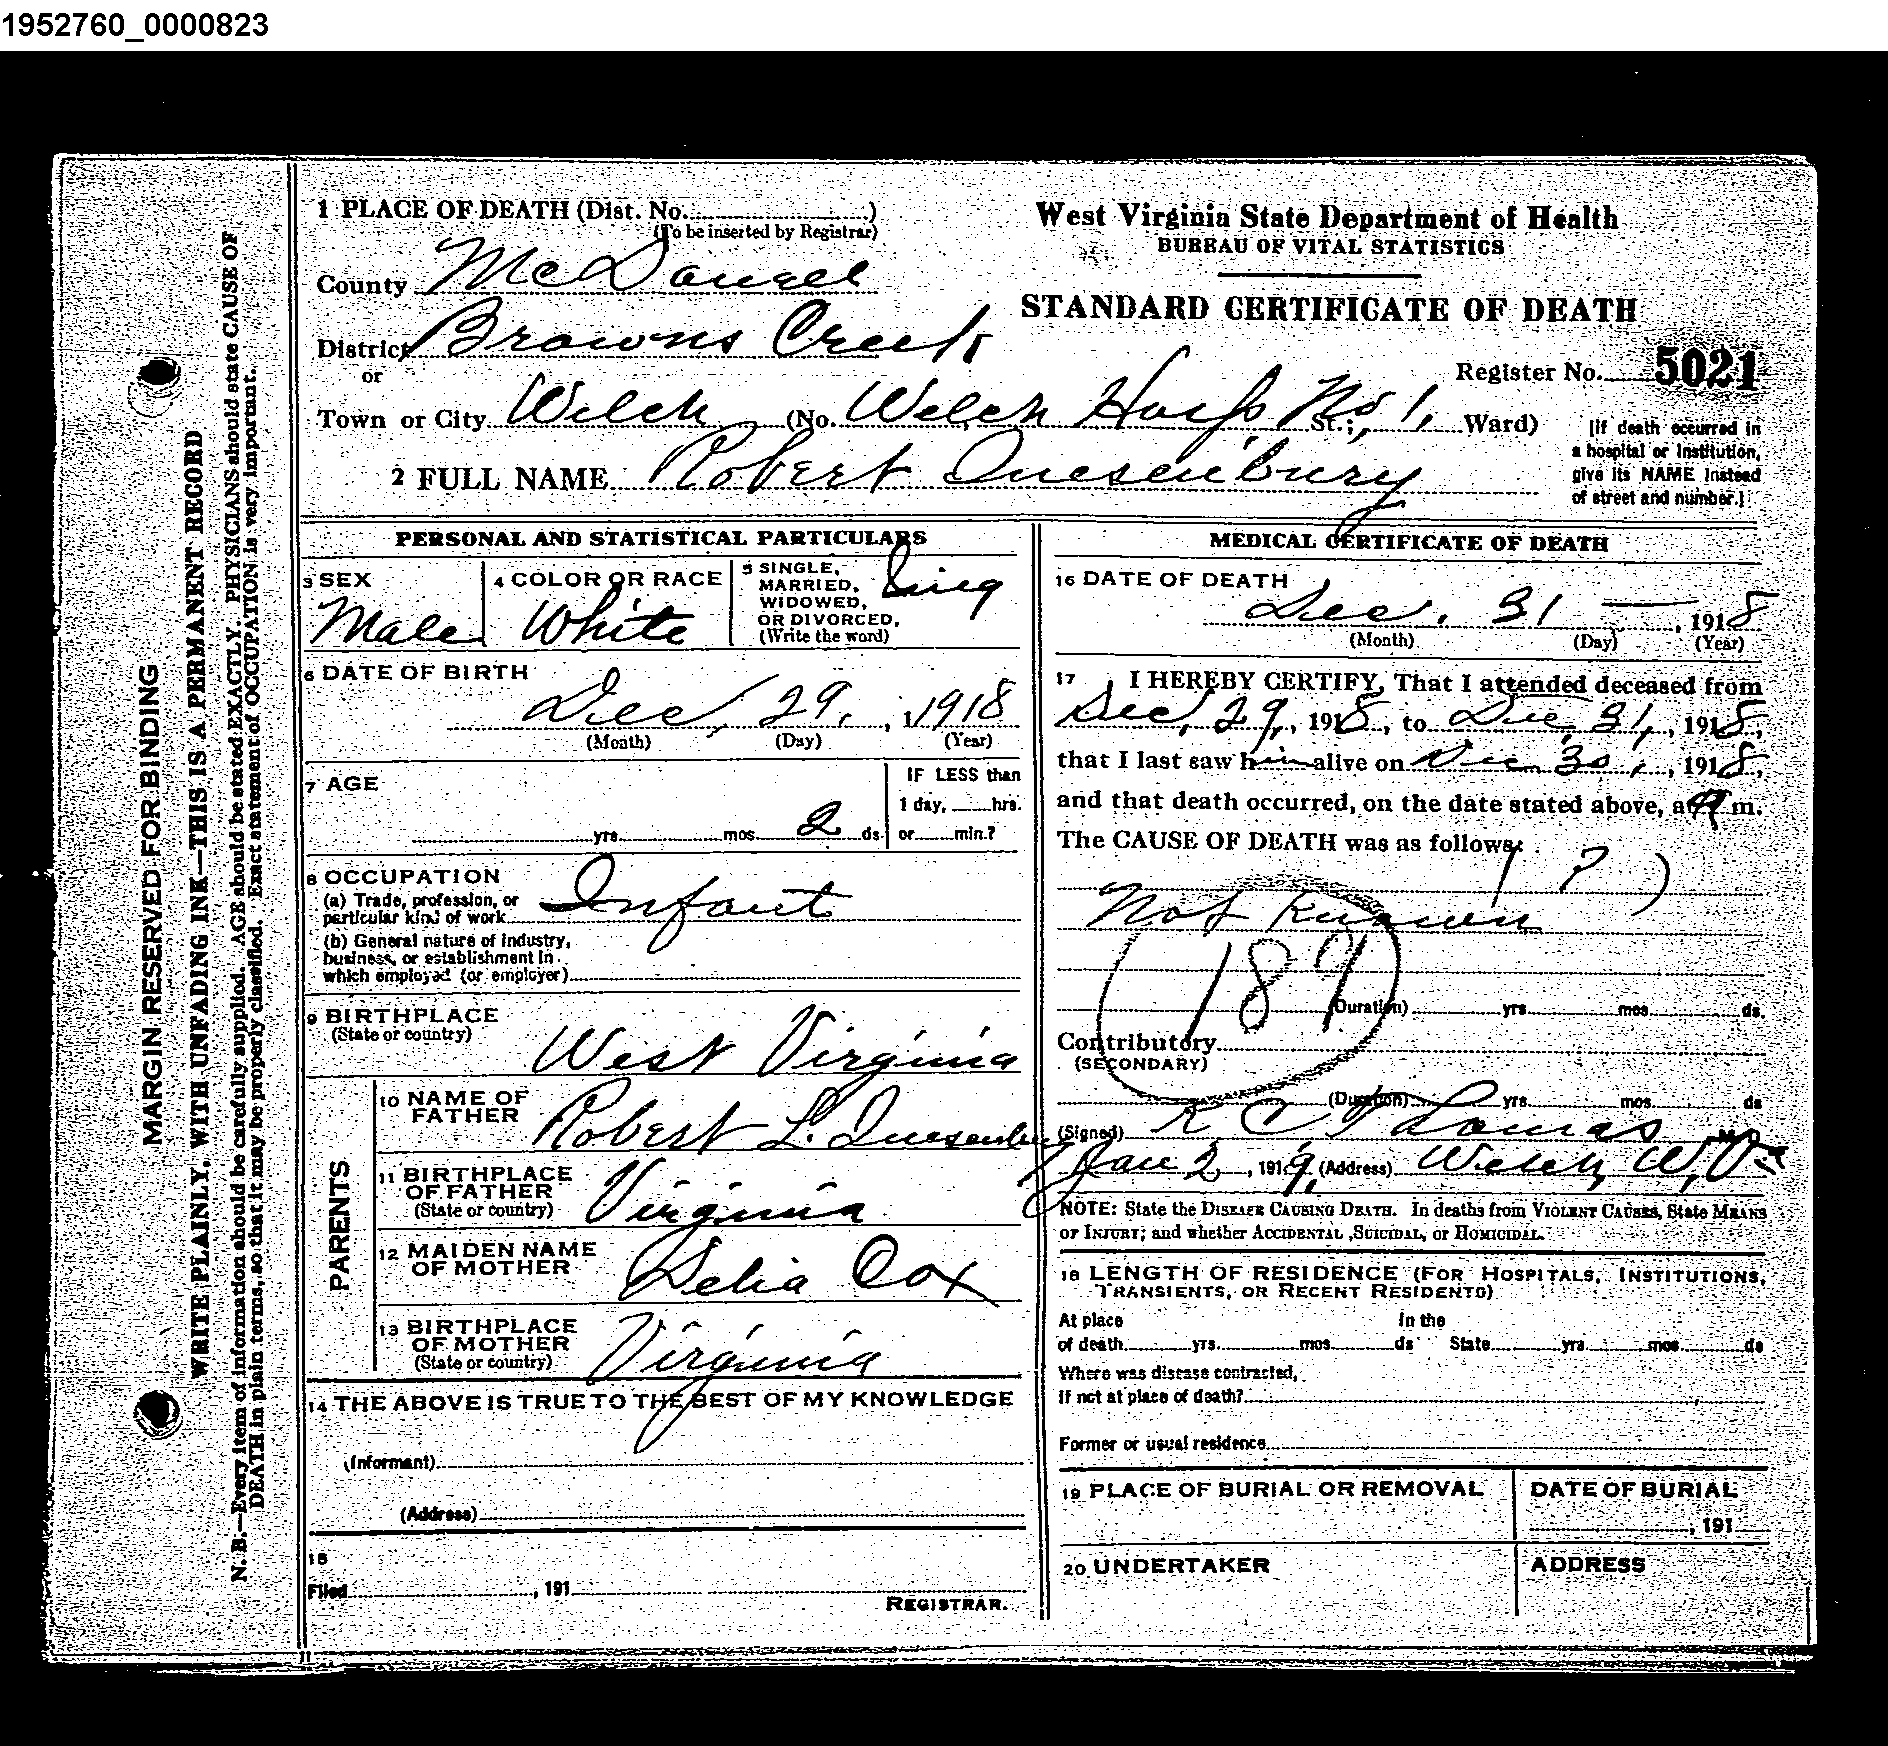 1952760_0000823
MARGIN RESERVED FOR BINDING
WRITE PLAINLY, WITH UNFADING INK—THIS IS A PERMANENT RECORD
N. B.—Every item of information should be carefully supplied. AGE should be stated EXACTLY. PHYSICIANS should state CAUSE OF
DEATH in plain terms, so that it may be properly classified. Exact statement of OCCUPATION is very important.
1 PLACE OF DEATH (Dist. No. )
(To be inserted by Registrar)
County McDowell
District Browns Creek
or
Town or City Welch (No. Welch Hosp No 1, St.; Ward)
West Virginia State Department of Health
BUREAU OF VITAL STATISTICS
STANDARD CERTIFICATE OF DEATH
Register No. 5021
[If death occurred in
a hospital or institution,
give its NAME instead
of street and number.]
2 FULL NAME Robert Quesenbury
PERSONAL AND STATISTICAL PARTICULARS
3 SEX
Male
4 COLOR OR RACE
White
5 SINGLE,
MARRIED,
WIDOWED,
OR DIVORCED,
(Write the word)
Sing
6 DATE OF BIRTH
Dec, 29, , 1918
(Month) (Day) (Year)
7 AGE
yrs. mos. 2 ds.
IF LESS than
1 day, hrs.
or min.?
8 OCCUPATION
(a) Trade, profession, or
particular kind of work Infant
(b) General nature of industry,
business, or establishment in
which employed (or employer)
9 BIRTHPLACE
(State or country)
West Virginia
PARENTS
10 NAME OF
FATHER Robert L. Quesenbury
11 BIRTHPLACE
OF FATHER
(State or country) Virginia
12 MAIDEN NAME
OF MOTHER Delia Cox
13 BIRTHPLACE
OF MOTHER
(State or country) Virginia
14 THE ABOVE IS TRUE TO THE BEST OF MY KNOWLEDGE
(Informant)
(Address)
15
Filed , 191
REGISTRAR.
MEDICAL CERTIFICATE OF DEATH
16 DATE OF DEATH
Dec. 31 — , 1918
(Month) (Day) (Year)
17 I HEREBY CERTIFY, That I attended deceased from
Dec, 29, , 1918, to Dec, 31, , 1918,
that I last saw him alive on Dec 30, , 1918,
and that death occurred, on the date stated above, at m.
The CAUSE OF DEATH was as follows:
( ? )
Not Known
189
(Duration) yrs. mos. ds.
Contributory
(SECONDARY)
(Duration) yrs. mos. ds
(Signed) R C Thomas M. D.
Jan 2 , 1919, (Address) Welch, W, Va
NOTE: State the DISEASE CAUSING DEATH. In deaths from VIOLENT CAUSES, State MEANS
OF INJURY; and whether ACCIDENTAL ,SUICIDAL, or HOMICIDAL.
18 LENGTH OF RESIDENCE (FOR HOSPITALS, INSTITUTIONS,
TRANSIENTS, OR RECENT RESIDENTS)
At place In the
of death yrs. mos. ds State yrs. mos. ds
Where was disease contracted,
If not at place of death?
Former or usual residence
19 PLACE OF BURIAL OR REMOVAL
DATE OF BURIAL
, 191
20 UNDERTAKER
ADDRESS